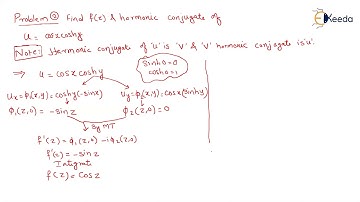 Problem ② Find f(z) & harmonic conjugate of
u = cosx coshy
Ekeeda
Note: Harmonic conjugate of 'u' is 'v' & 'v' harmonic conjugate is 'u'.
⇒ u = cosx coshy
sinh0=0
cosh0=1
ux=ϕ1(x,y)=coshy(-sinx) uy=ϕ2(x,y)=cosx(sinhy)
ϕ1(z,0) = -sinz ϕ2(z,0)=0
By MT
f'(z) = ϕ1(z,0) - iϕ2(z,0)
f'(z) = -sinz
Integrate
f(z) = cosz